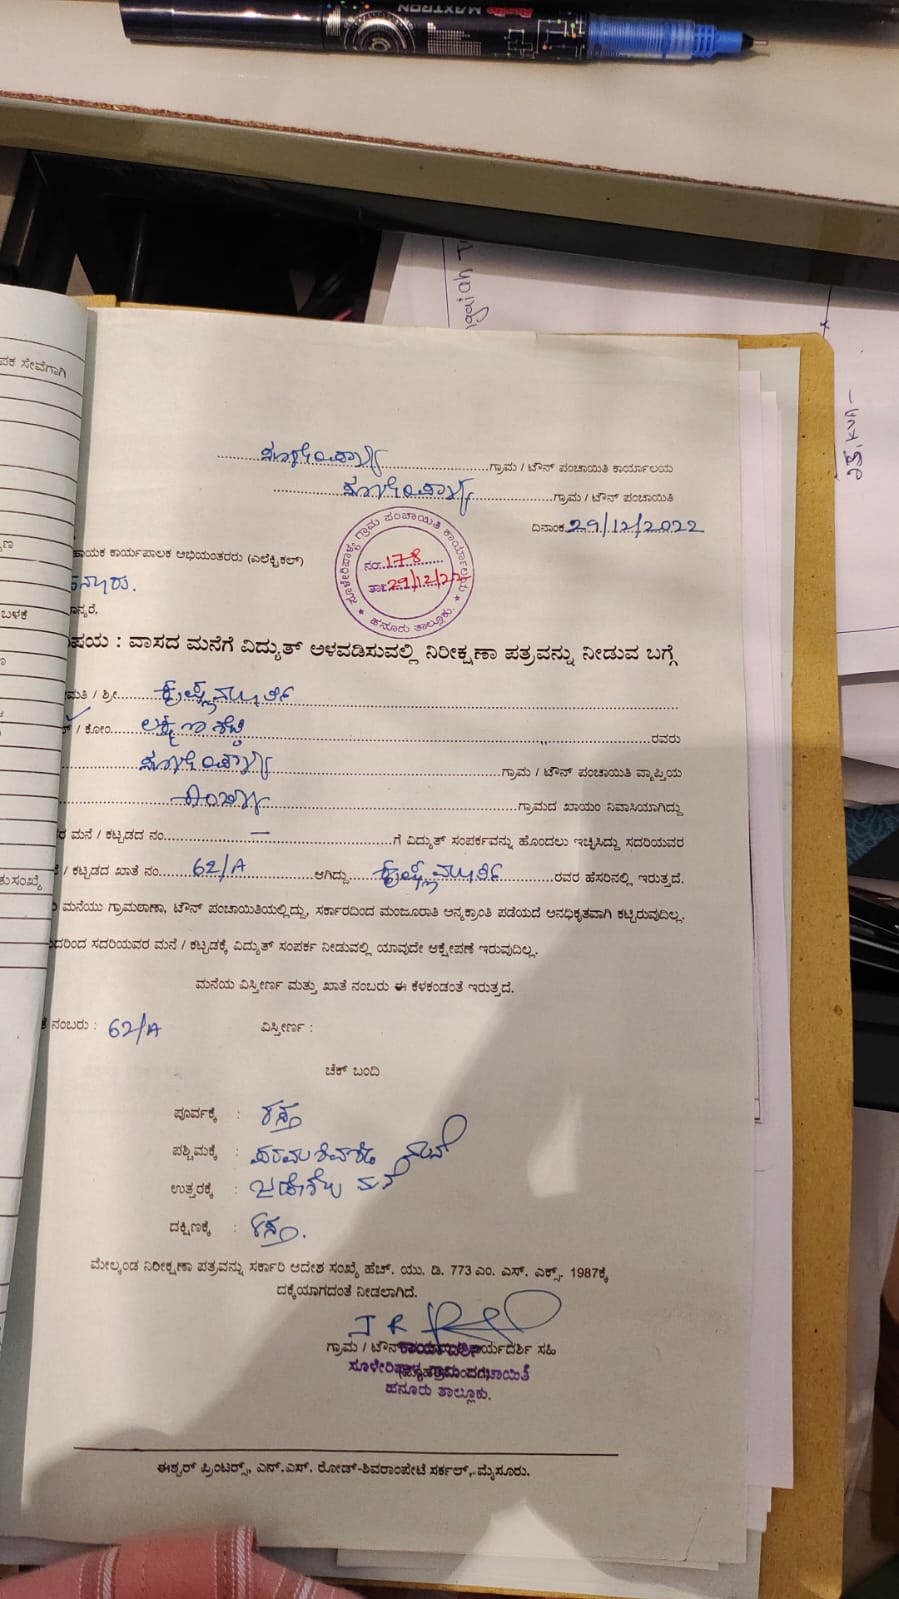 Rorito MAXTRON
ngaiah
KVA -
ಪಕ ಸೇವೆಗಾಗಿ
ಬಳಕೆ
ಸೂಳೇರಿಪಾಳ್ಯ ಗ್ರಾಮ / ಟೌನ್ ಪಂಚಾಯಿತಿ ಕಾರ್ಯಾಲಯ
ಸೂಳೇರಿಪಾಳ್ಯ ಗ್ರಾಮ / ಟೌನ್ ಪಂಚಾಯಿತಿ
ದಿನಾಂಕ 29/12/2022
ಸೂಳೇರಿಪಾಳ್ಯ ಗ್ರಾಮ ಪಂಚಾಯಿತಿ ಕಾರ್ಯಾಲಯ
ನಂ: 178
ತಾ: 29/12/22
* ಹನೂರು ತಾಲ್ಲೂಕು. *
ಹಾಯಕ ಕಾರ್ಯಪಾಲಕ ಅಭಿಯಂತರರು (ಎಲೆಕ್ಟ್ರಿಕಲ್)
ಹನೂರು.
ನ್ಯರೆ,
ಷಯ : ವಾಸದ ಮನೆಗೆ ವಿದ್ಯುತ್ ಅಳವಡಿಸುವಲ್ಲಿ ನಿರೀಕ್ಷಣಾ ಪತ್ರವನ್ನು ನೀಡುವ ಬಗ್ಗೆ
ಮತಿ / ಶ್ರೀ ಕೃಷ್ಣಮೂರ್ತಿ
/ ಕೋಂ ಲಕ್ಷ್ಮಣಶೆಟ್ಟಿ ರವರು
ಸೂಳೇರಿಪಾಳ್ಯ ಗ್ರಾಮ / ಟೌನ್ ಪಂಚಾಯಿತಿ ವ್ಯಾಪ್ತಿಯ
ಗ್ರಾಮದ ಖಾಯಂ ನಿವಾಸಿಯಾಗಿದ್ದು
ರ ಮನೆ / ಕಟ್ಟಡದ ನಂ. — ಗೆ ವಿದ್ಯುತ್ ಸಂಪರ್ಕವನ್ನು ಹೊಂದಲು ಇಚ್ಛಿಸಿದ್ದು ಸದರಿಯವರ
/ ಕಟ್ಟಡದ ಖಾತೆ ನಂ. 62/A ಆಗಿದ್ದು ಕೃಷ್ಣಮೂರ್ತಿ ರವರ ಹೆಸರಿನಲ್ಲಿ ಇರುತ್ತದೆ.
ಮನೆಯು ಗ್ರಾಮಠಾಣಾ, ಟೌನ್ ಪಂಚಾಯಿತಿಯಲ್ಲಿದ್ದು, ಸರ್ಕಾರದಿಂದ ಮಂಜೂರಾತಿ ಅನ್ಯಕ್ರಾಂತಿ ಪಡೆಯದೆ ಅನಧಿಕೃತವಾಗಿ ಕಟ್ಟಿರುವುದಿಲ್ಲ.
ದರಿಂದ ಸದರಿಯವರ ಮನೆ / ಕಟ್ಟಡಕ್ಕೆ ವಿದ್ಯುತ್ ಸಂಪರ್ಕ ನೀಡುವಲ್ಲಿ ಯಾವುದೇ ಆಕ್ಷೇಪಣೆ ಇರುವುದಿಲ್ಲ.
ಮನೆಯ ವಿಸ್ತೀರ್ಣ ಮತ್ತು ಖಾತೆ ನಂಬರು ಈ ಕೆಳಕಂಡಂತೆ ಇರುತ್ತದೆ.
ನಂಬರು : 62/A ವಿಸ್ತೀರ್ಣ :
ಚೆಕ್ ಬಂದಿ
ಪೂರ್ವಕ್ಕೆ : ರಸ್ತೆ
ಪಶ್ಚಿಮಕ್ಕೆ : ಪರಮಶಿವಶೆಟ್ಟಿ ಮನೆ
ಉತ್ತರಕ್ಕೆ : ಮನೆ
ದಕ್ಷಿಣಕ್ಕೆ : ರಸ್ತೆ.
ಮೇಲ್ಕಂಡ ನಿರೀಕ್ಷಣಾ ಪತ್ರವನ್ನು ಸರ್ಕಾರಿ ಆದೇಶ ಸಂಖ್ಯೆ ಹೆಚ್. ಯು. ಡಿ. 773 ಎಂ. ಎಸ್. ಎಕ್ಸ್. 1987ಕ್ಕೆ
ದಕ್ಕೆಯಾಗದಂತೆ ನೀಡಲಾಗಿದೆ.
ಗ್ರಾಮ / ಟೌನ್ ಕಾರ್ಯದರ್ಶಿ ಸಹಿ
ಕಾರ್ಯದರ್ಶಿ
ಸೂಳೇರಿಪಾಳ್ಯ ಗ್ರಾಮ ಪಂಚಾಯಿತಿ
ಹನೂರು ತಾಲ್ಲೂಕು.
ಈಶ್ವರ್ ಪ್ರಿಂಟರ್ಸ್, ಎನ್.ಎಸ್. ರೋಡ್-ಶಿವರಾಂಪೇಟೆ ಸರ್ಕಲ್, ಮೈಸೂರು.